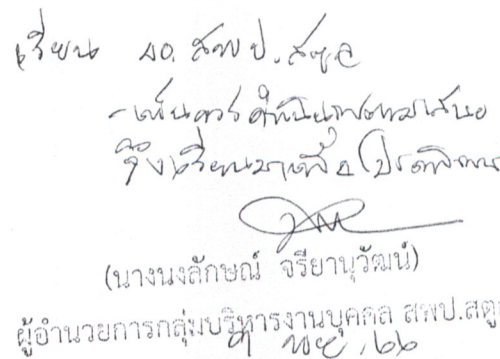 เรียน ผอ.สพป.สตูล
-เห็นควรดำเนินการตามเสนอ
จึงเรียนมาเพื่อโปรดพิจารณา
(นางนงลักษณ์ จริยานุวัฒน์)
ผู้อำนวยการกลุ่มบริหารงานบุคคล สพป.สตูล
พ.ย. ๖๖